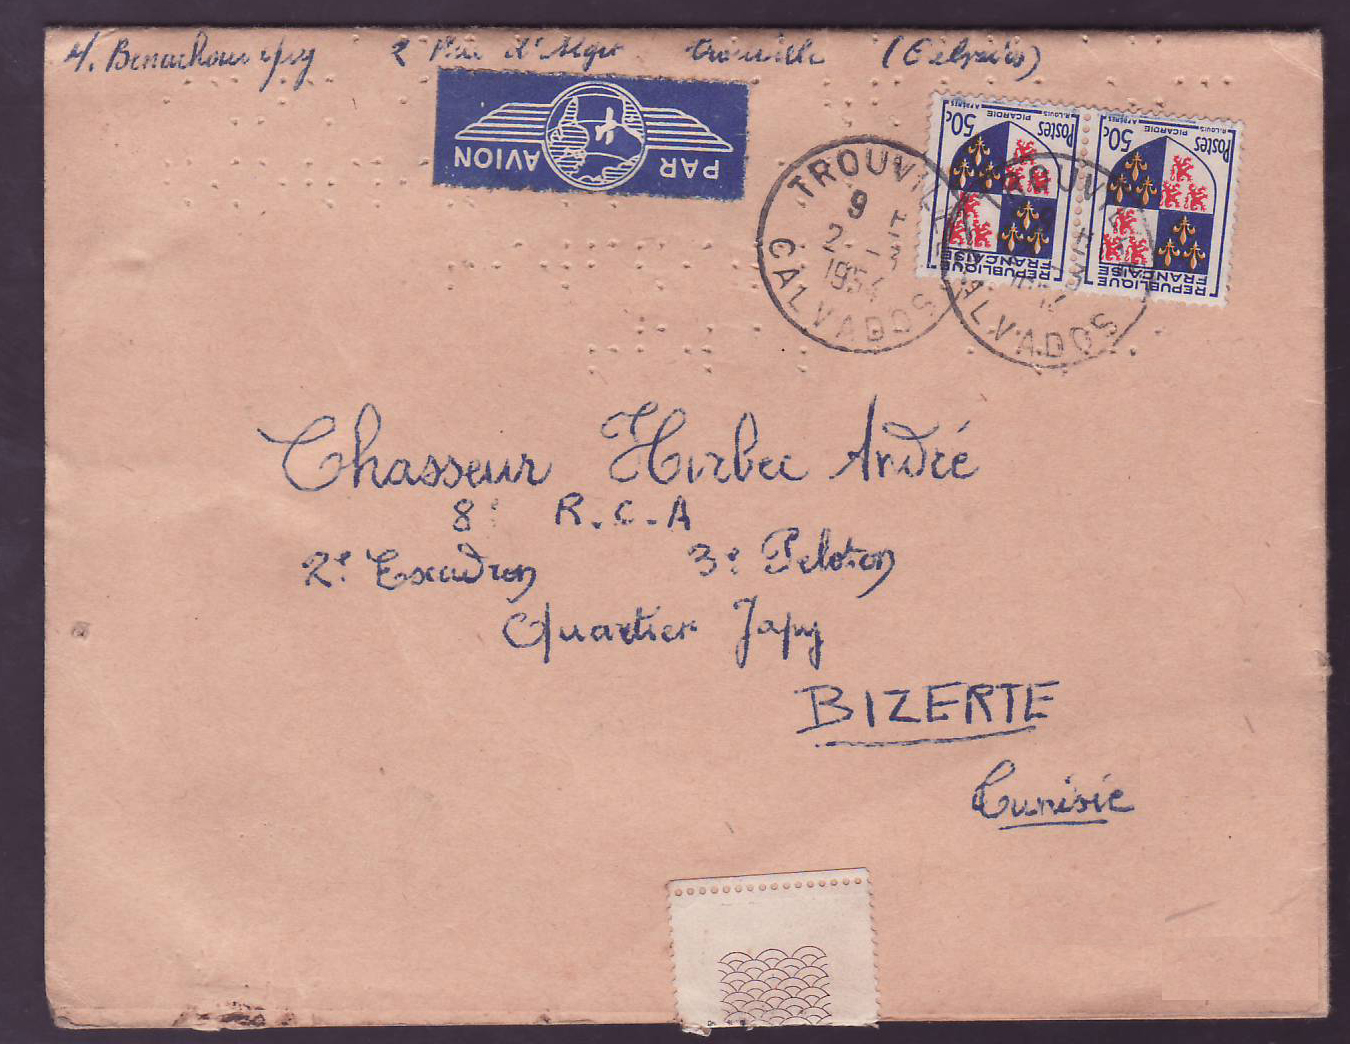 2 Rue d'Alger Trouville (Calvados)
PAR AVION
TROUVILLE
9 H
2 - 3
1954
CALVADOS
50c Postes
PICARDIE
RÉPUBLIQUE
FRANÇAISE
50c Postes
PICARDIE
RÉPUBLIQUE
FRANÇAISE
TROUVILLE
CALVADOS
Chasseur Hirbec André
8e R.C.A
2e Escadron 3e Peloton
Quartier Japy
BIZERTE
Tunisie